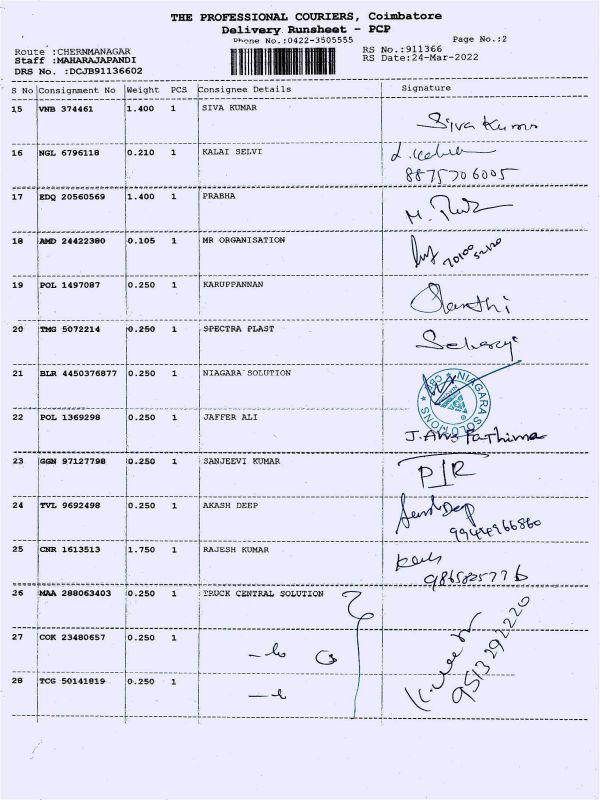 THE PROFESSIONAL COURIERS, Coimbatore
Delivery Runsheet - PCP
Phone No.:0422-3505555
Page No.:2
Route :CHERNMANAGAR
RS No.:911366
Staff :MAHARAJAPANDI
RS Date:24-Mar-2022
DRS No. :DCJB91136602
S No Consignment No Weight PCS Consignee Details Signature
15 VNB 374461 1.400 1 SIVA KUMAR Siva Kumar
16 NGL 6796118 0.210 1 KALAI SELVI
8875706005
17 EDQ 20560569 1.400 1 PRABHA
18 AMD 24422380 0.105 1 MR ORGANISATION
19 POL 1497087 0.250 1 KARUPPANNAN
20 TMG 5072214 0.250 1 SPECTRA PLAST
21 BLR 4450376877 0.250 1 NIAGARA SOLUTION
NIAGARA SOLUTIONS CBE
22 POL 1369298 0.250 1 JAFFER ALI
Fathima
23 GGN 97127798 0.250 1 SANJEEVI KUMAR
24 TVL 9692498 0.250 1 AKASH DEEP
Deep
25 CNR 1613513 1.750 1 RAJESH KUMAR
26 MAA 288063403 0.250 1 TRUCK CENTRAL SOLUTION
27 COK 23480657 0.250 1
9513292220
28 TCG 50141819 0.250 1